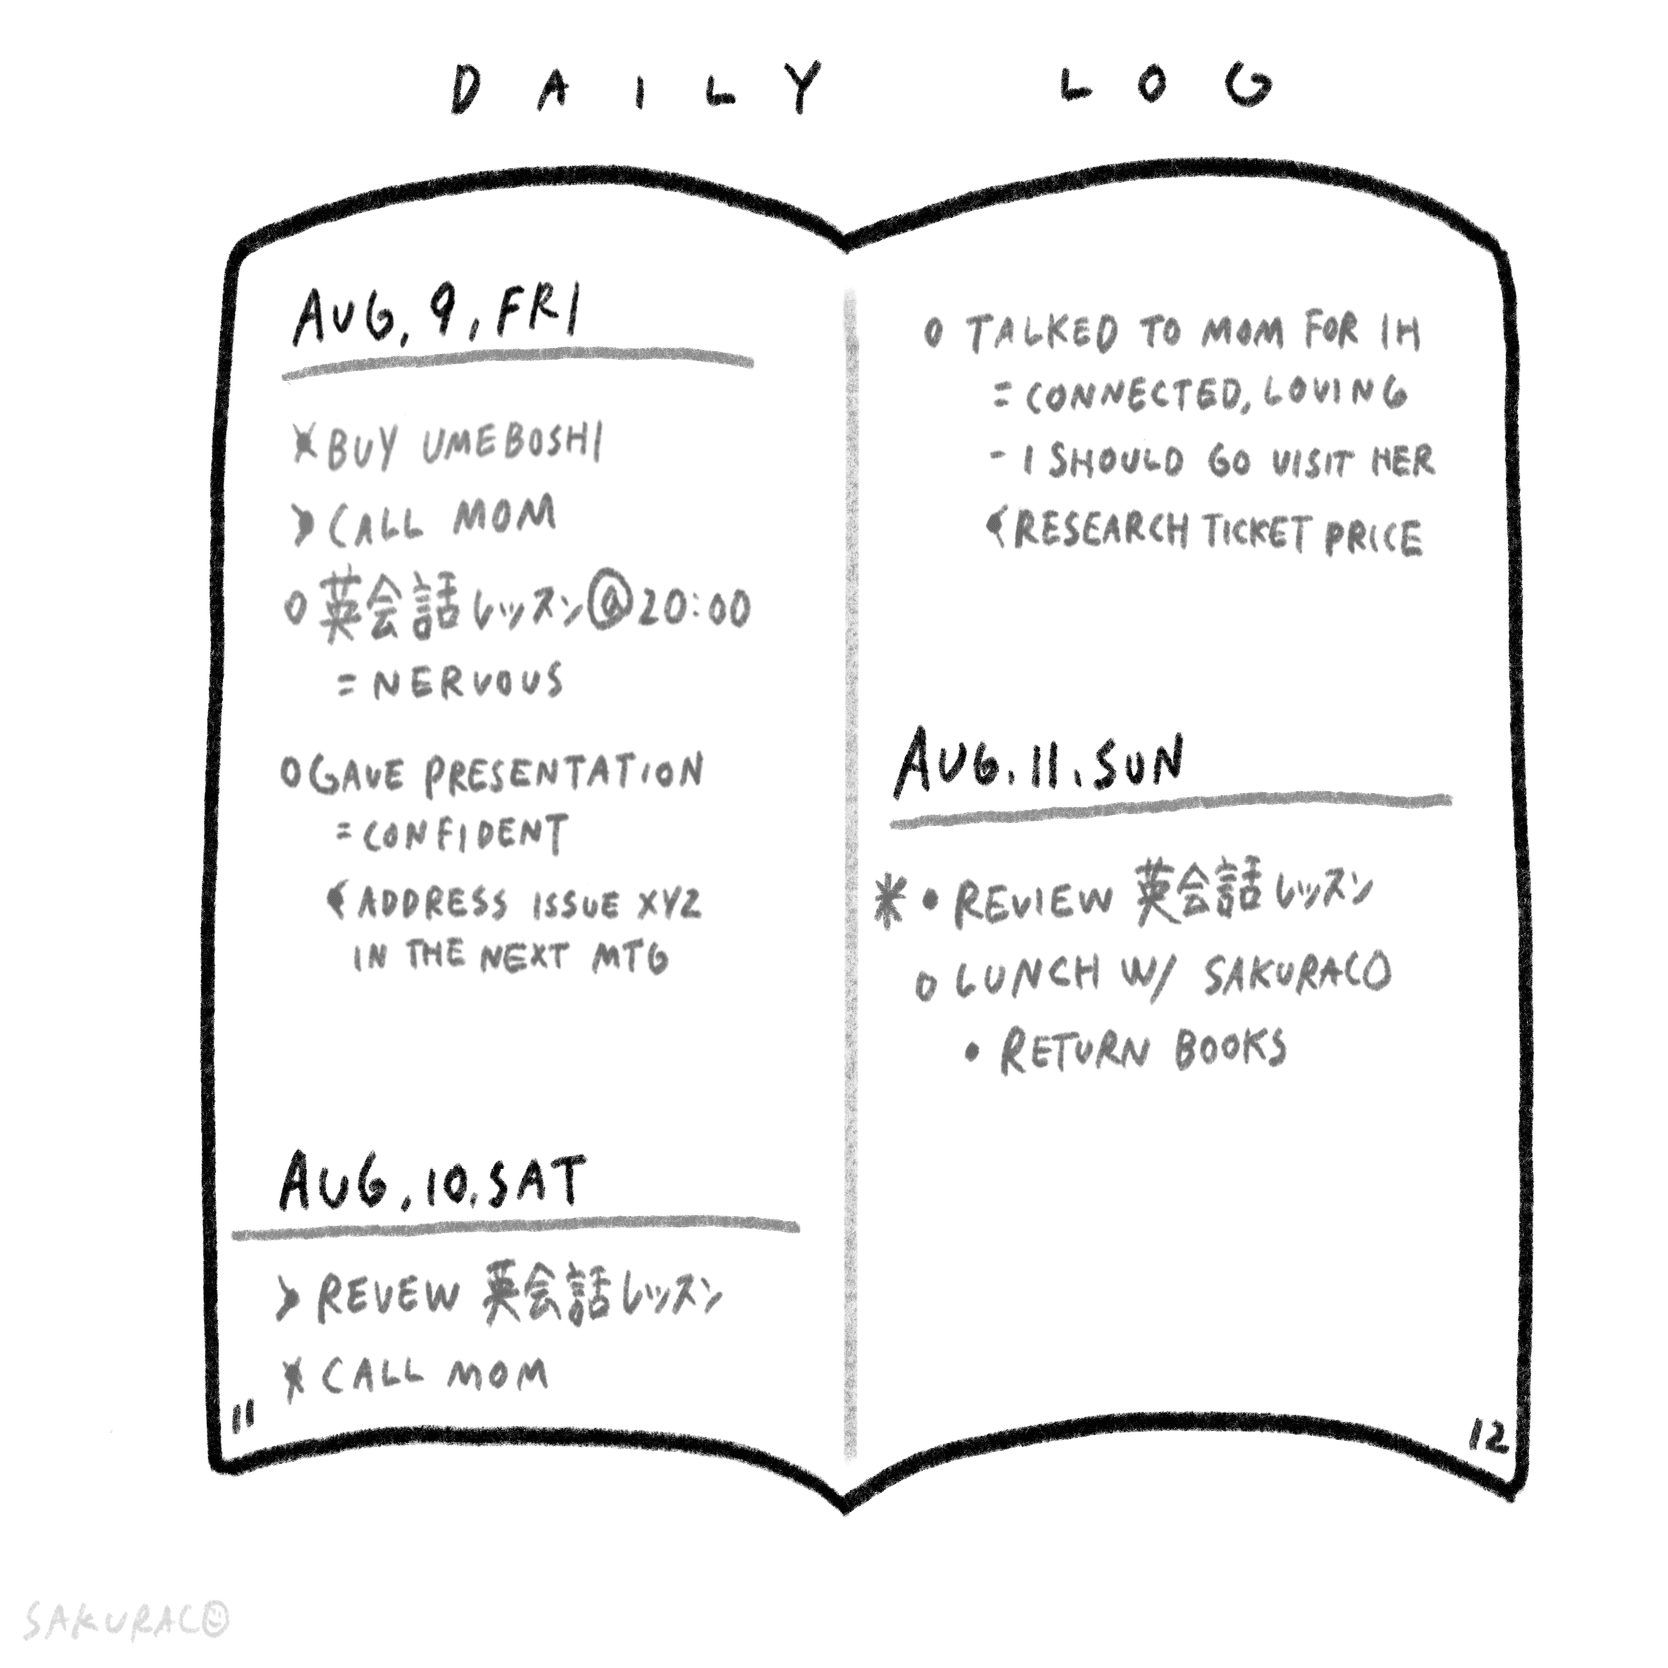 DAILY LOG
AUG. 9, FRI
× BUY UMEBOSHI
> CALL MOM
○ 英会話レッスン@20:00
= NERVOUS
○ GAVE PRESENTATION
= CONFIDENT
< ADDRESS ISSUE XYZ
IN THE NEXT MTG
AUG. 10. SAT
> REVEW 英会話レッスン
× CALL MOM
11
○ TALKED TO MOM FOR 1H
= CONNECTED, LOVING
- I SHOULD GO VISIT HER
< RESEARCH TICKET PRICE
AUG. 11. SUN
* • REVIEW 英会話レッスン
○ LUNCH W/ SAKURACO
• RETURN BOOKS
12
SAKURACO